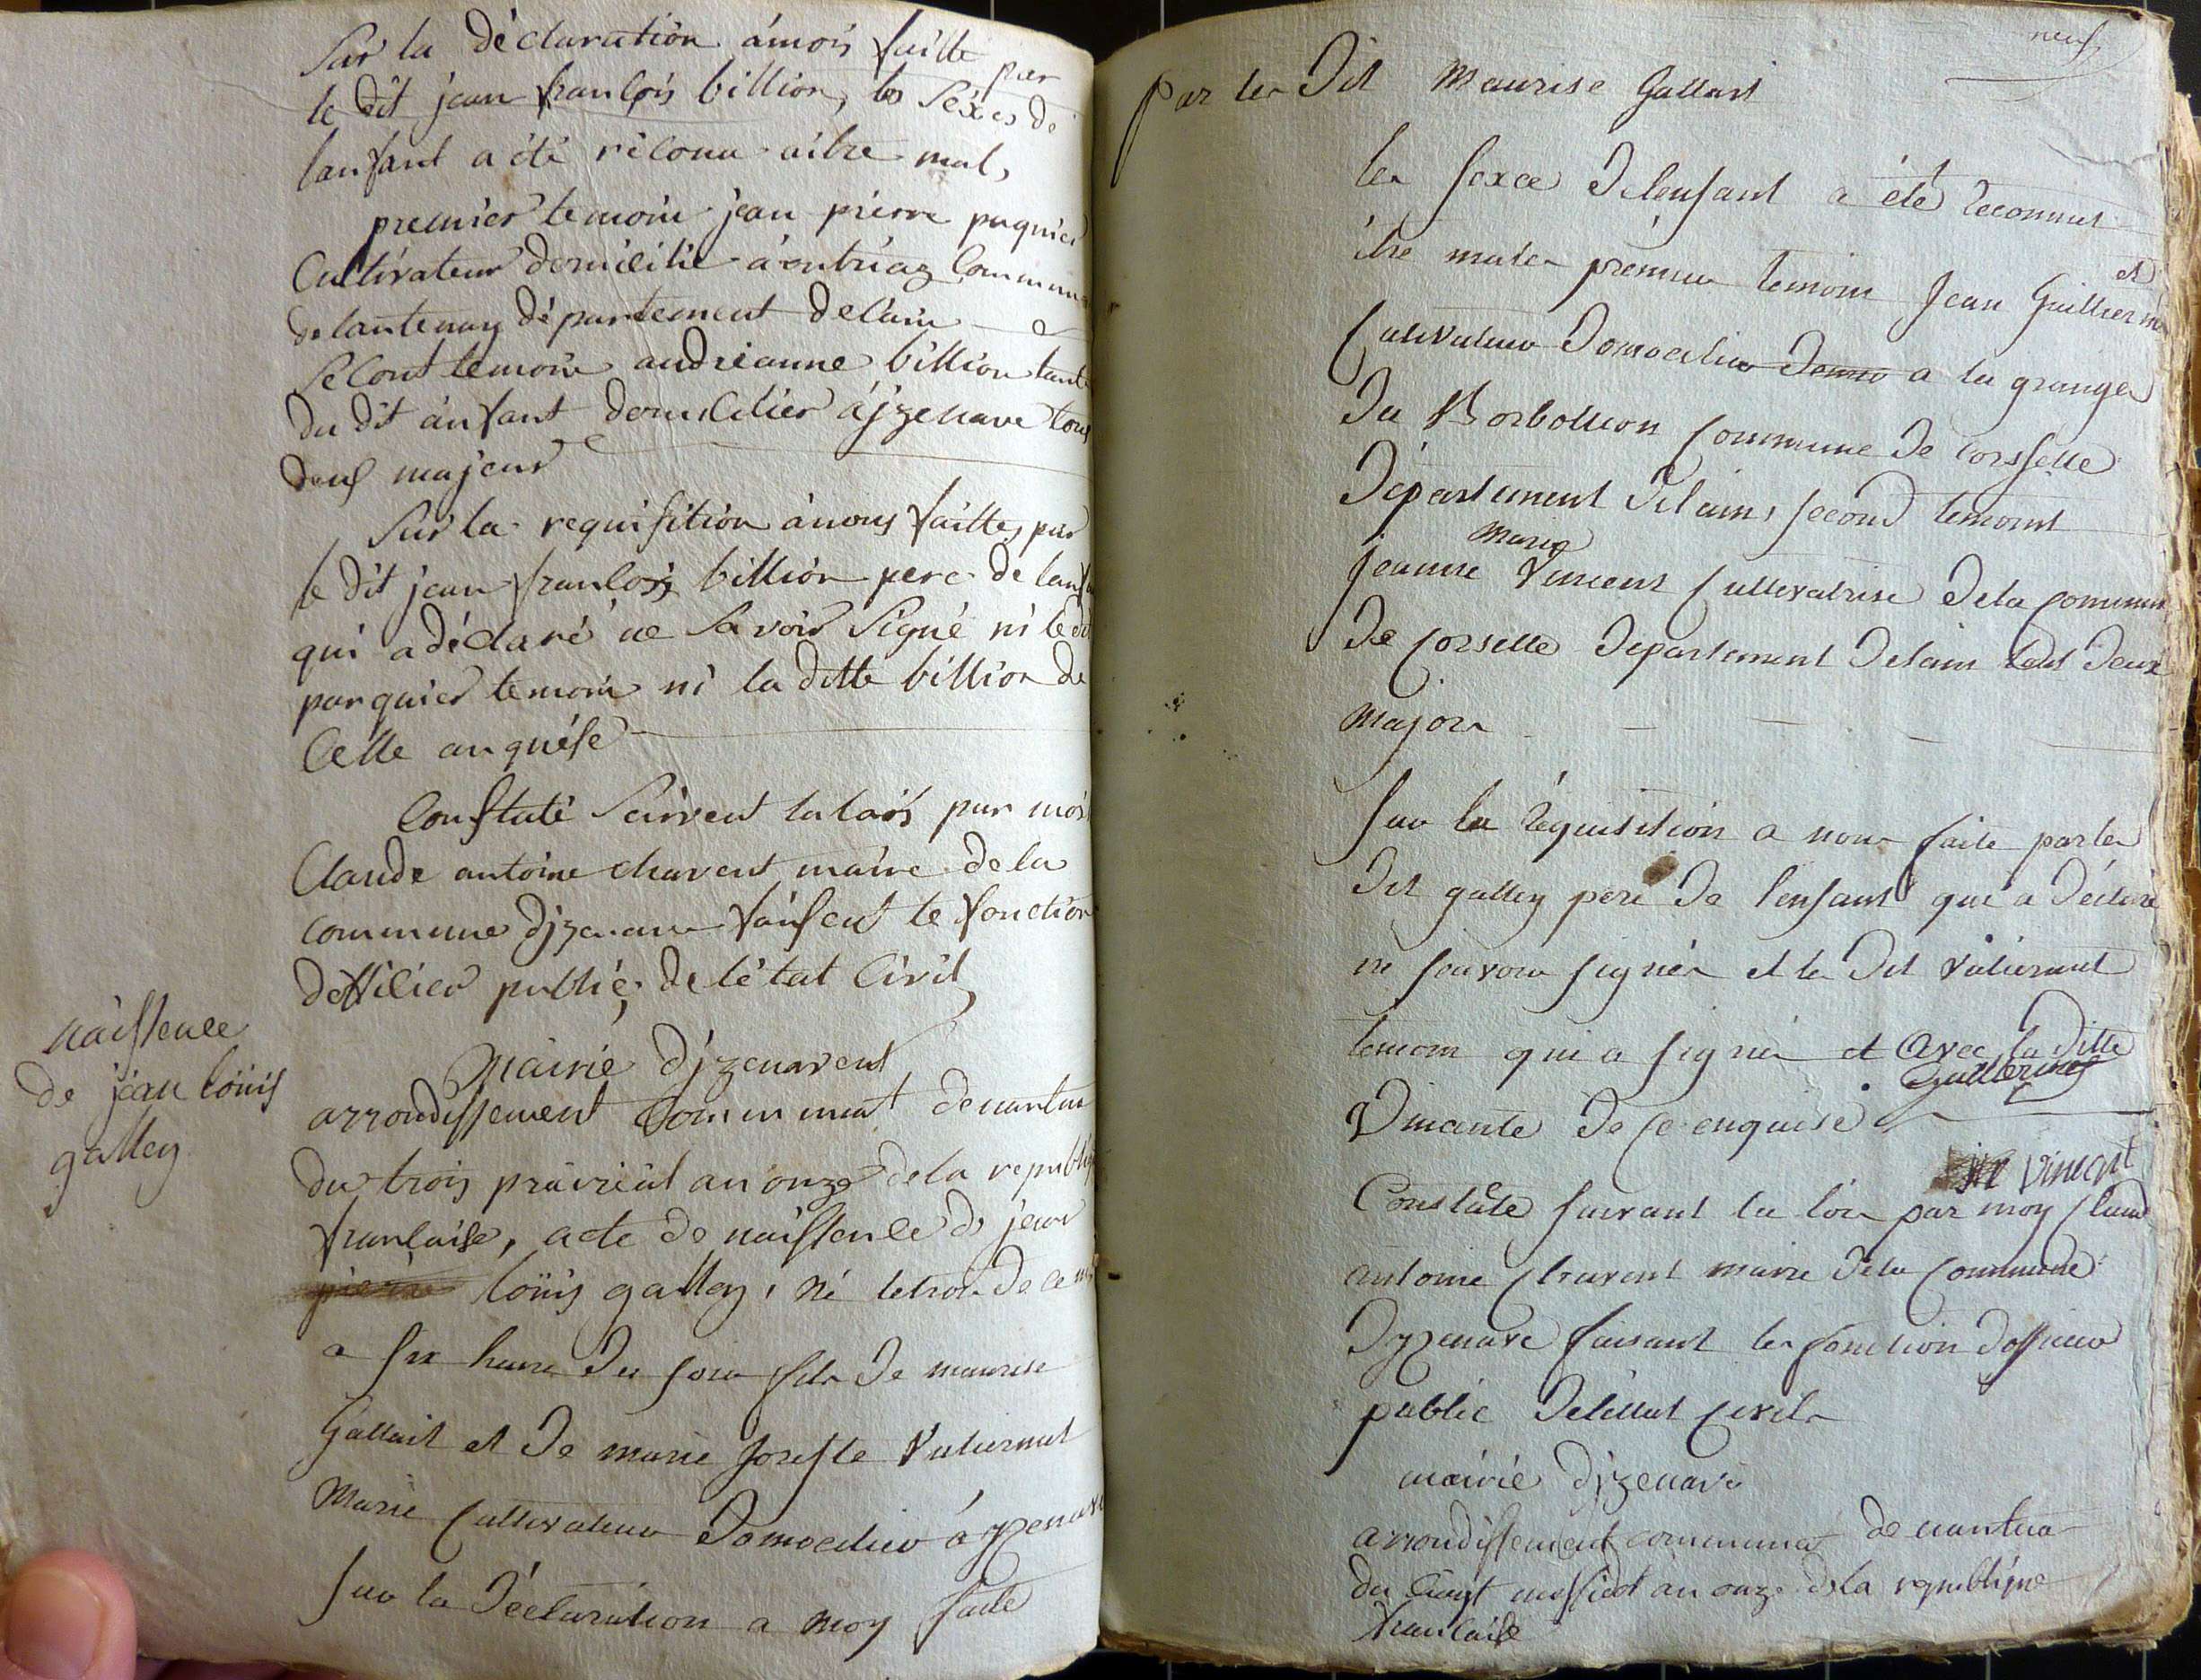 Sur la déclaration àmoi faitte par
le dit jean françois billion, les séxes de
lanfant a été réconu aitre mal,
premier temoin jean pierre puquier
Cultivateur domicilié à outriaz Commune
de lantenay département delain e
Second temoin andrianne billion tante
du dit anfant domicilier àjzenave tous
deus majeur
Sur la requisition ànous faitte, par
le dit jean françois billion pere de lanfa
qui a déclaré ne Savoir Signé ni le dit
parquier temoin ni la ditte billion de
Celle anquise
Constaté Suivent la lois par moi
Claude antoine chavent maire de la
commune djzenave faisent le fonction
dofficier public, de létat Civil,
naissence
de jean loüis
galley
Mairie djzenavent
arrondissement Communat denantua
du trois prairial an onze de la republiq
française, acte de naissence de jean
pierre loüis galley, né letrois de ce m
a six heure du soir fils de maurise
Gallait et de marie Josefte Vuliermet
Marié Cultivateur Domocilier à yzenave
Sur la Déclaration a moy faite
neuf
par les Dit Maurise Gallait
les sexce De lenfant a été Reconnut
être males prémier temoins Jean Guillermet
Cultivateur Domocilier Domo a la granges
Du Borbollion Commune De Corsselle
Département Delain, second temoint
Marie
jeanne Vincent Cultivatrise De la Commun
De Corselle Département Delain tout Deux
Majors
Sur la Réquisition a nous faite par les
Dit galley pere De l'enfant qui a Déclaré
ne savoir signér et le Dit Vuliermet
temoin qui a signér et avec la ditte
Guillermet
Vincente De ce enquise
jm Vincent
Constate suivant la lois par moy Claud
antoine Chavent maire De la Commune
Dyzenave faisant les fonction Dofficier
public De léttat Civile
mairie djzenave
arrondissement communat de nantua
du Vingt messidot an onze dela republique
francaise